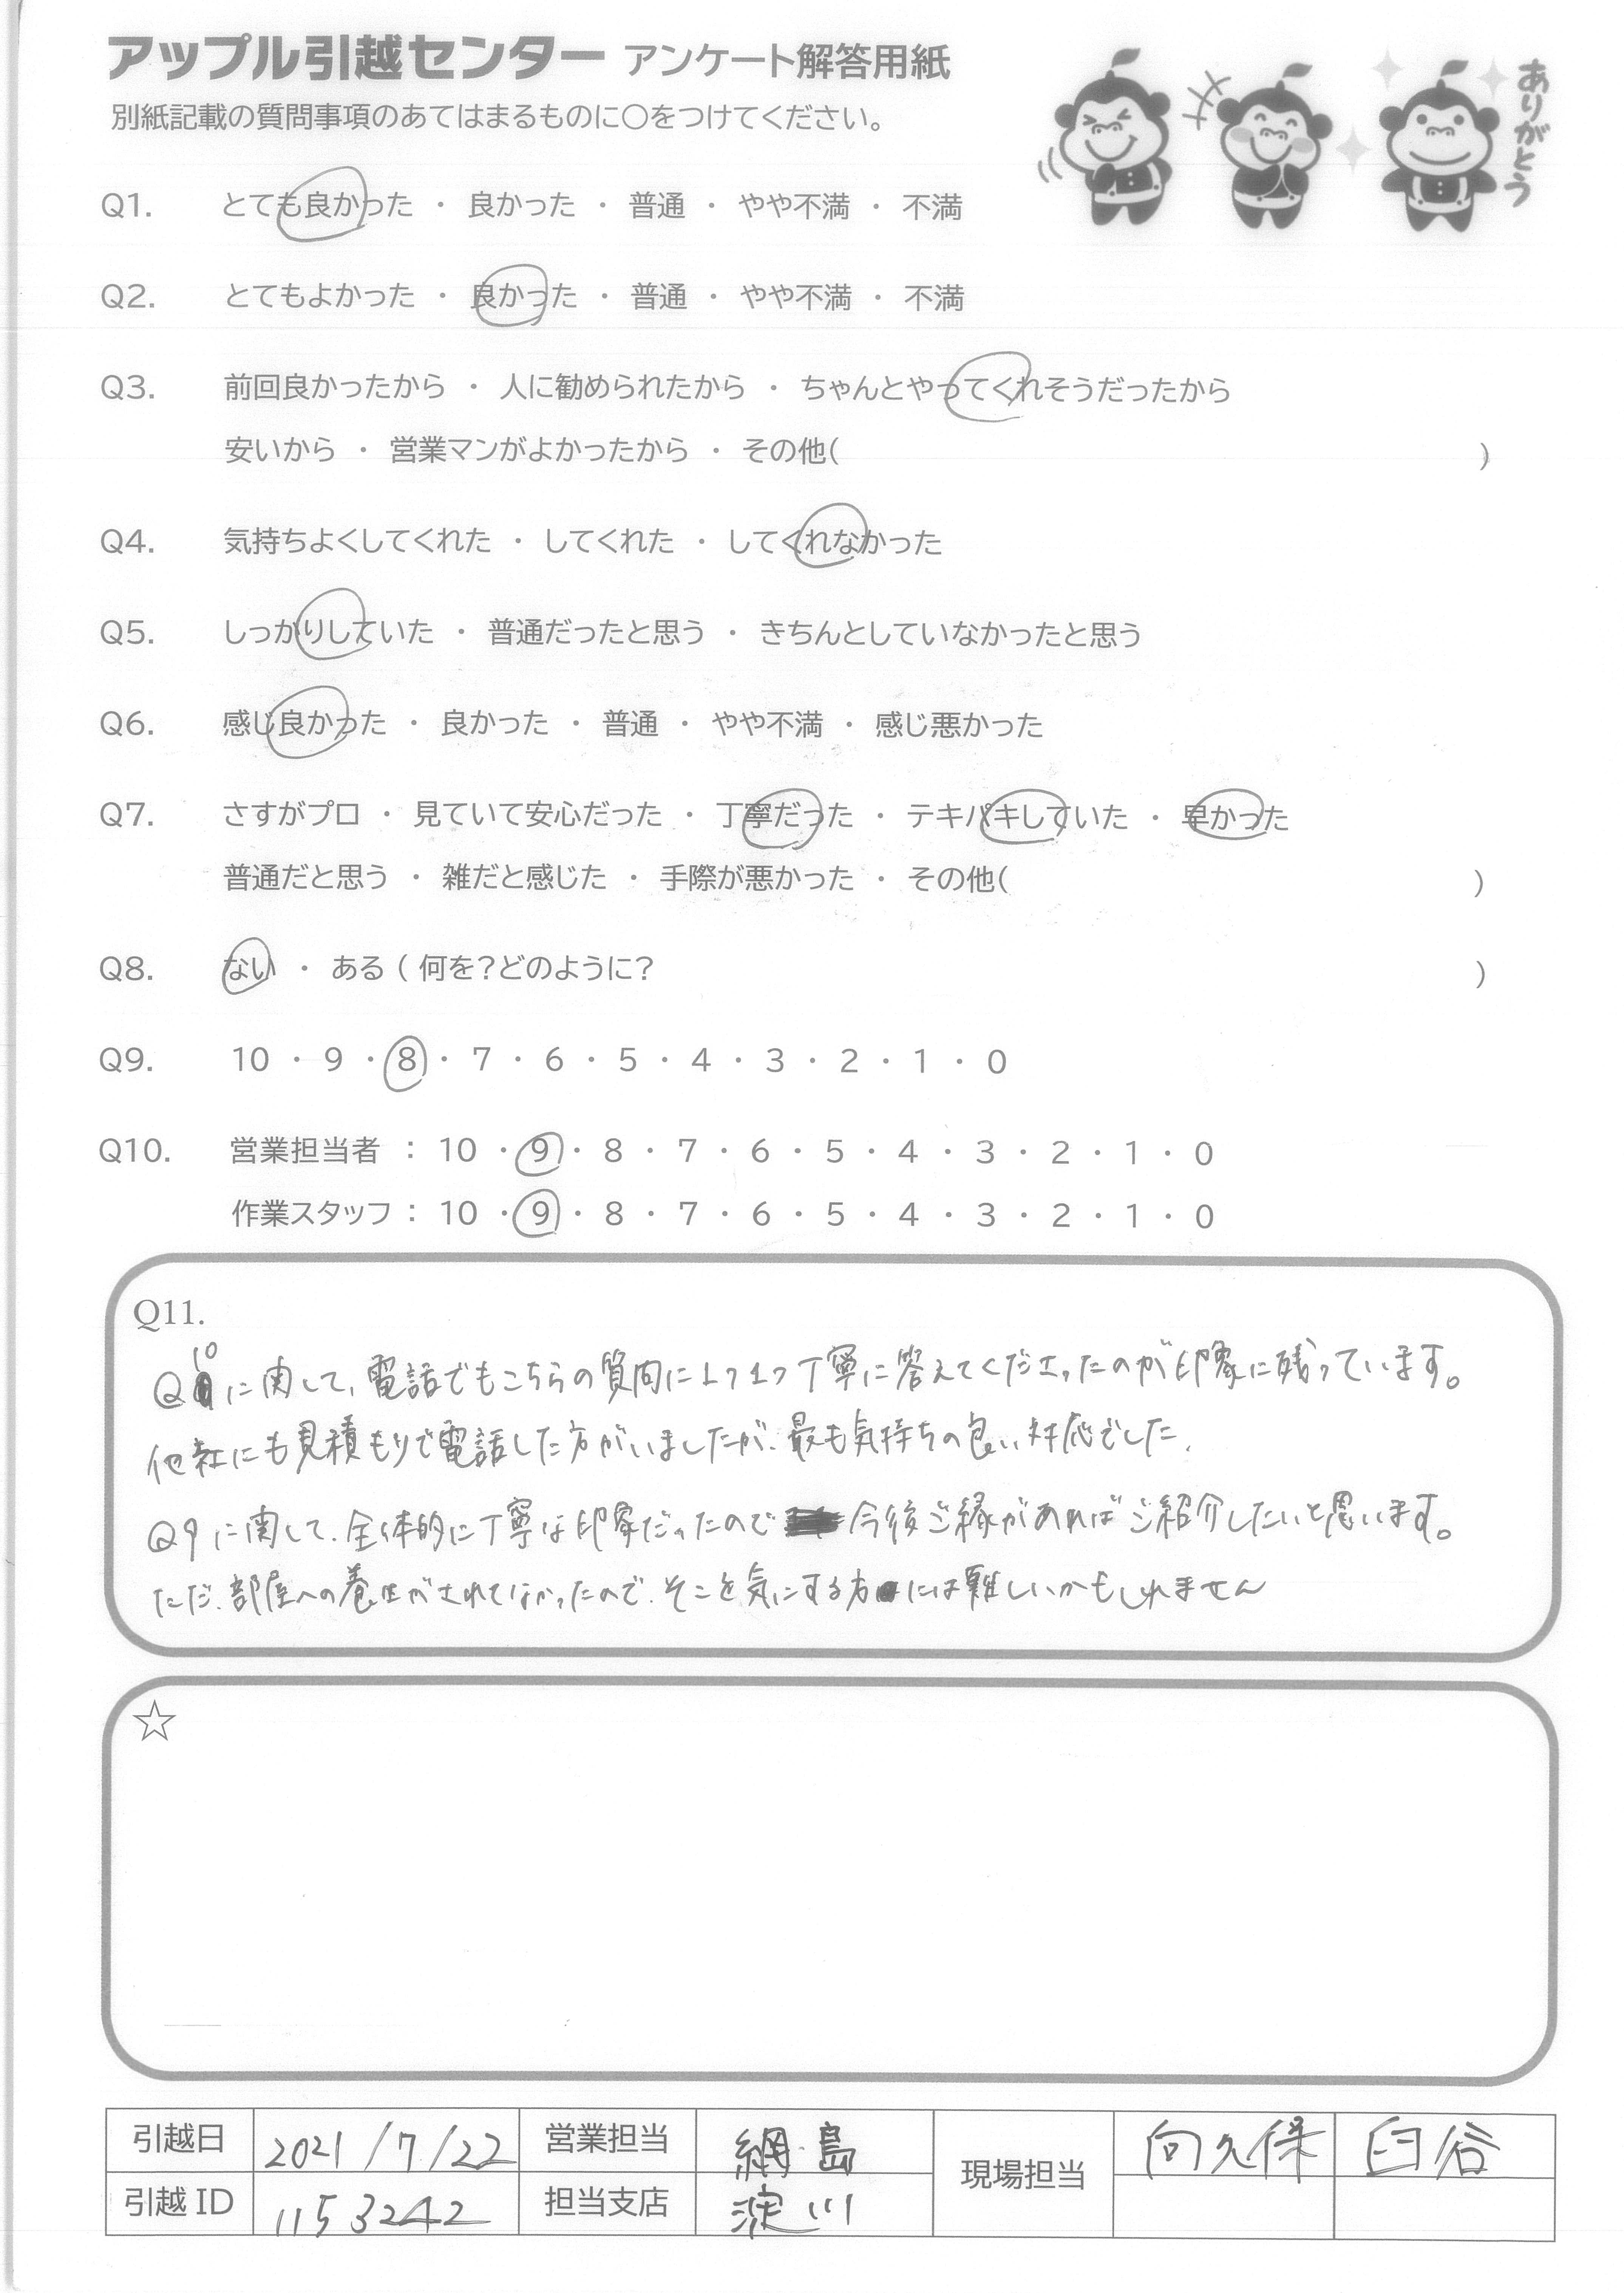 アップル引越センター アンケート解答用紙
別紙記載の質問事項のあてはまるものに○をつけてください。
ありがとう
Q1. とても良かった ・ 良かった ・ 普通 ・ やや不満 ・ 不満
Q2. とてもよかった ・ 良かった ・ 普通 ・ やや不満 ・ 不満
Q3. 前回良かったから ・ 人に勧められたから ・ ちゃんとやってくれそうだったから
安いから ・ 営業マンがよかったから ・ その他( )
Q4. 気持ちよくしてくれた ・ してくれた ・ してくれなかった
Q5. しっかりしていた ・ 普通だったと思う ・ きちんとしていなかったと思う
Q6. 感じ良かった ・ 良かった ・ 普通 ・ やや不満 ・ 感じ悪かった
Q7. さすがプロ ・ 見ていて安心だった ・ 丁寧だった ・ テキパキしていた ・ 早かった
普通だと思う ・ 雑だと感じた ・ 手際が悪かった ・ その他( )
Q8. ない ・ ある ( 何を?どのように? )
Q9. 10 ・ 9 ・ 8 ・ 7 ・ 6 ・ 5 ・ 4 ・ 3 ・ 2 ・ 1 ・ 0
Q10. 営業担当者 : 10 ・ 9 ・ 8 ・ 7 ・ 6 ・ 5 ・ 4 ・ 3 ・ 2 ・ 1 ・ 0
作業スタッフ : 10 ・ 9 ・ 8 ・ 7 ・ 6 ・ 5 ・ 4 ・ 3 ・ 2 ・ 1 ・ 0
Q11.
Q10に関して、電話でもこちらの質問に1つ1つ丁寧に答えてくださったのが印象に残っています。
他社にも見積もりで電話した方がいましたが、最も気持ちの良い対応でした。
Q9に関して、全体的に丁寧な印象だったので 今後ご縁があればご紹介したいと思います。
ただ、部屋への養生がされてなかったので、そこを気にする方には難しいかもしれません
☆
引越日 2021/7/22 営業担当 網島 現場担当 向久保 臼谷
引越ID 1153242 担当支店 淀川